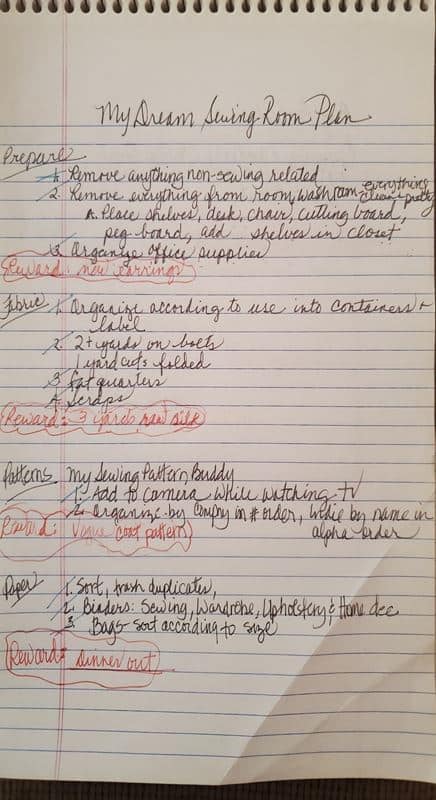 My Dream Sewing Room Plan
Prepare
1. Remove anything non-sewing related
2. Remove everything from room, wash room - everything clean & pretty
A. Place shelves, desk, chair, cutting board,
peg board, add shelves in closet
3. Organize office supplies
Reward: new earrings
Fabric 1. Organize according to use into containers +
label
2. 2+ yards on bolts
1 yard cuts folded
3. Fat quarters
4. Scraps
Reward: 3 yards raw silk
Patterns My Sewing Pattern Buddy
1. Add to camera while watching TV
2. Organize by company in # order, indie by name in
alpha order
Reward: Vogue coat pattern
Paper 1. Sort, trash duplicates,
2. Binders: Sewing, Wardrobe, Upholstery & Home dec
3. Bags - sort according to size
Reward: dinner out